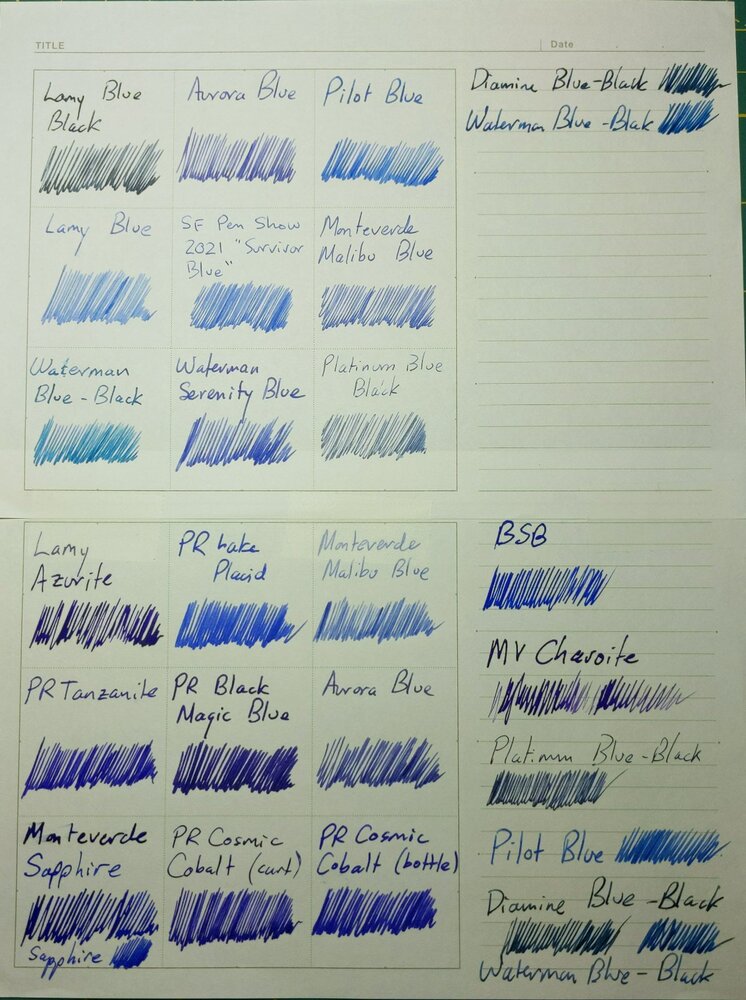 TITLE
Date
Lamy Blue
Black
Aurora Blue
Pilot Blue
Lamy Blue
SF Pen Show
2021 "Survivor
Blue"
Monteverde
Malibu Blue
Waterman
Blue - Black
Waterman
Serenity Blue
Platinum Blue
Black
Diamine Blue-Black
Waterman Blue - Blak
Lamy
Azurite
PR Lake
Placid
Monteverde
Malibu Blue
PR Tanzanite
PR Black
Magic Blue
Aurora Blue
Monteverde
Sapphire
Sapphire
PR Cosmic
Cobalt (cart)
PR Cosmic
Cobalt (bottle)
BSB
MV Charoite
Platinum Blue-Black
Pilot Blue
Diamine Blue-Black
Waterman Blue - Black